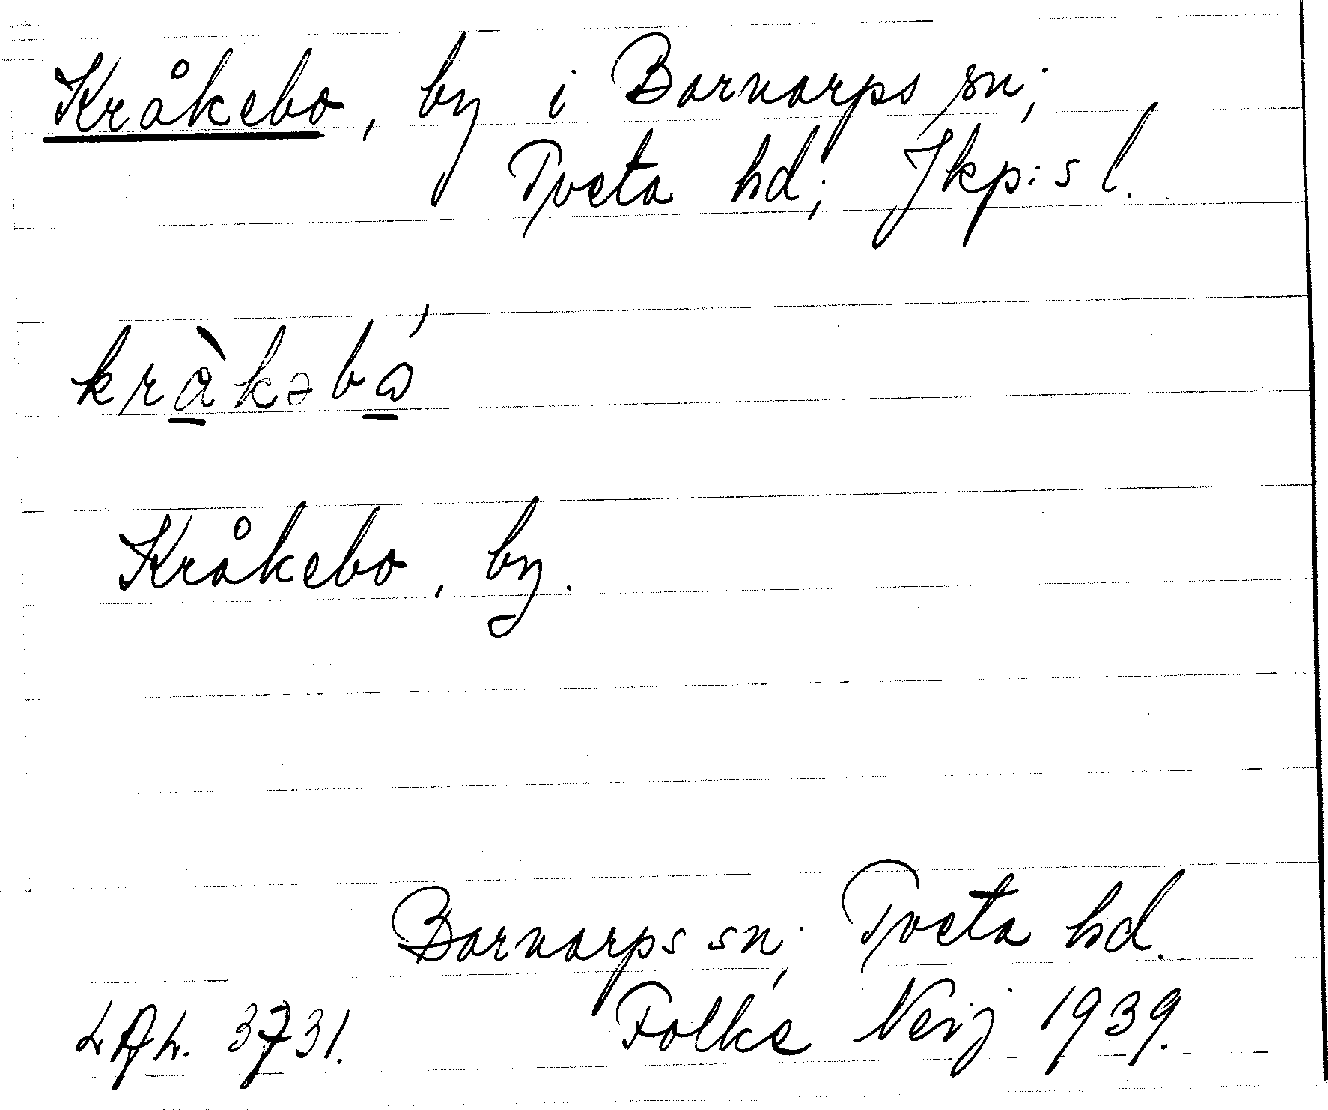 Kråkebo, by i Barnarps sn;
Tveta hd; Jkp:s l.
kràkəbó
Kråkebo, by.
Barnarps sn; Tveta hd.
LAL. 3731. Folke Neij 1939.